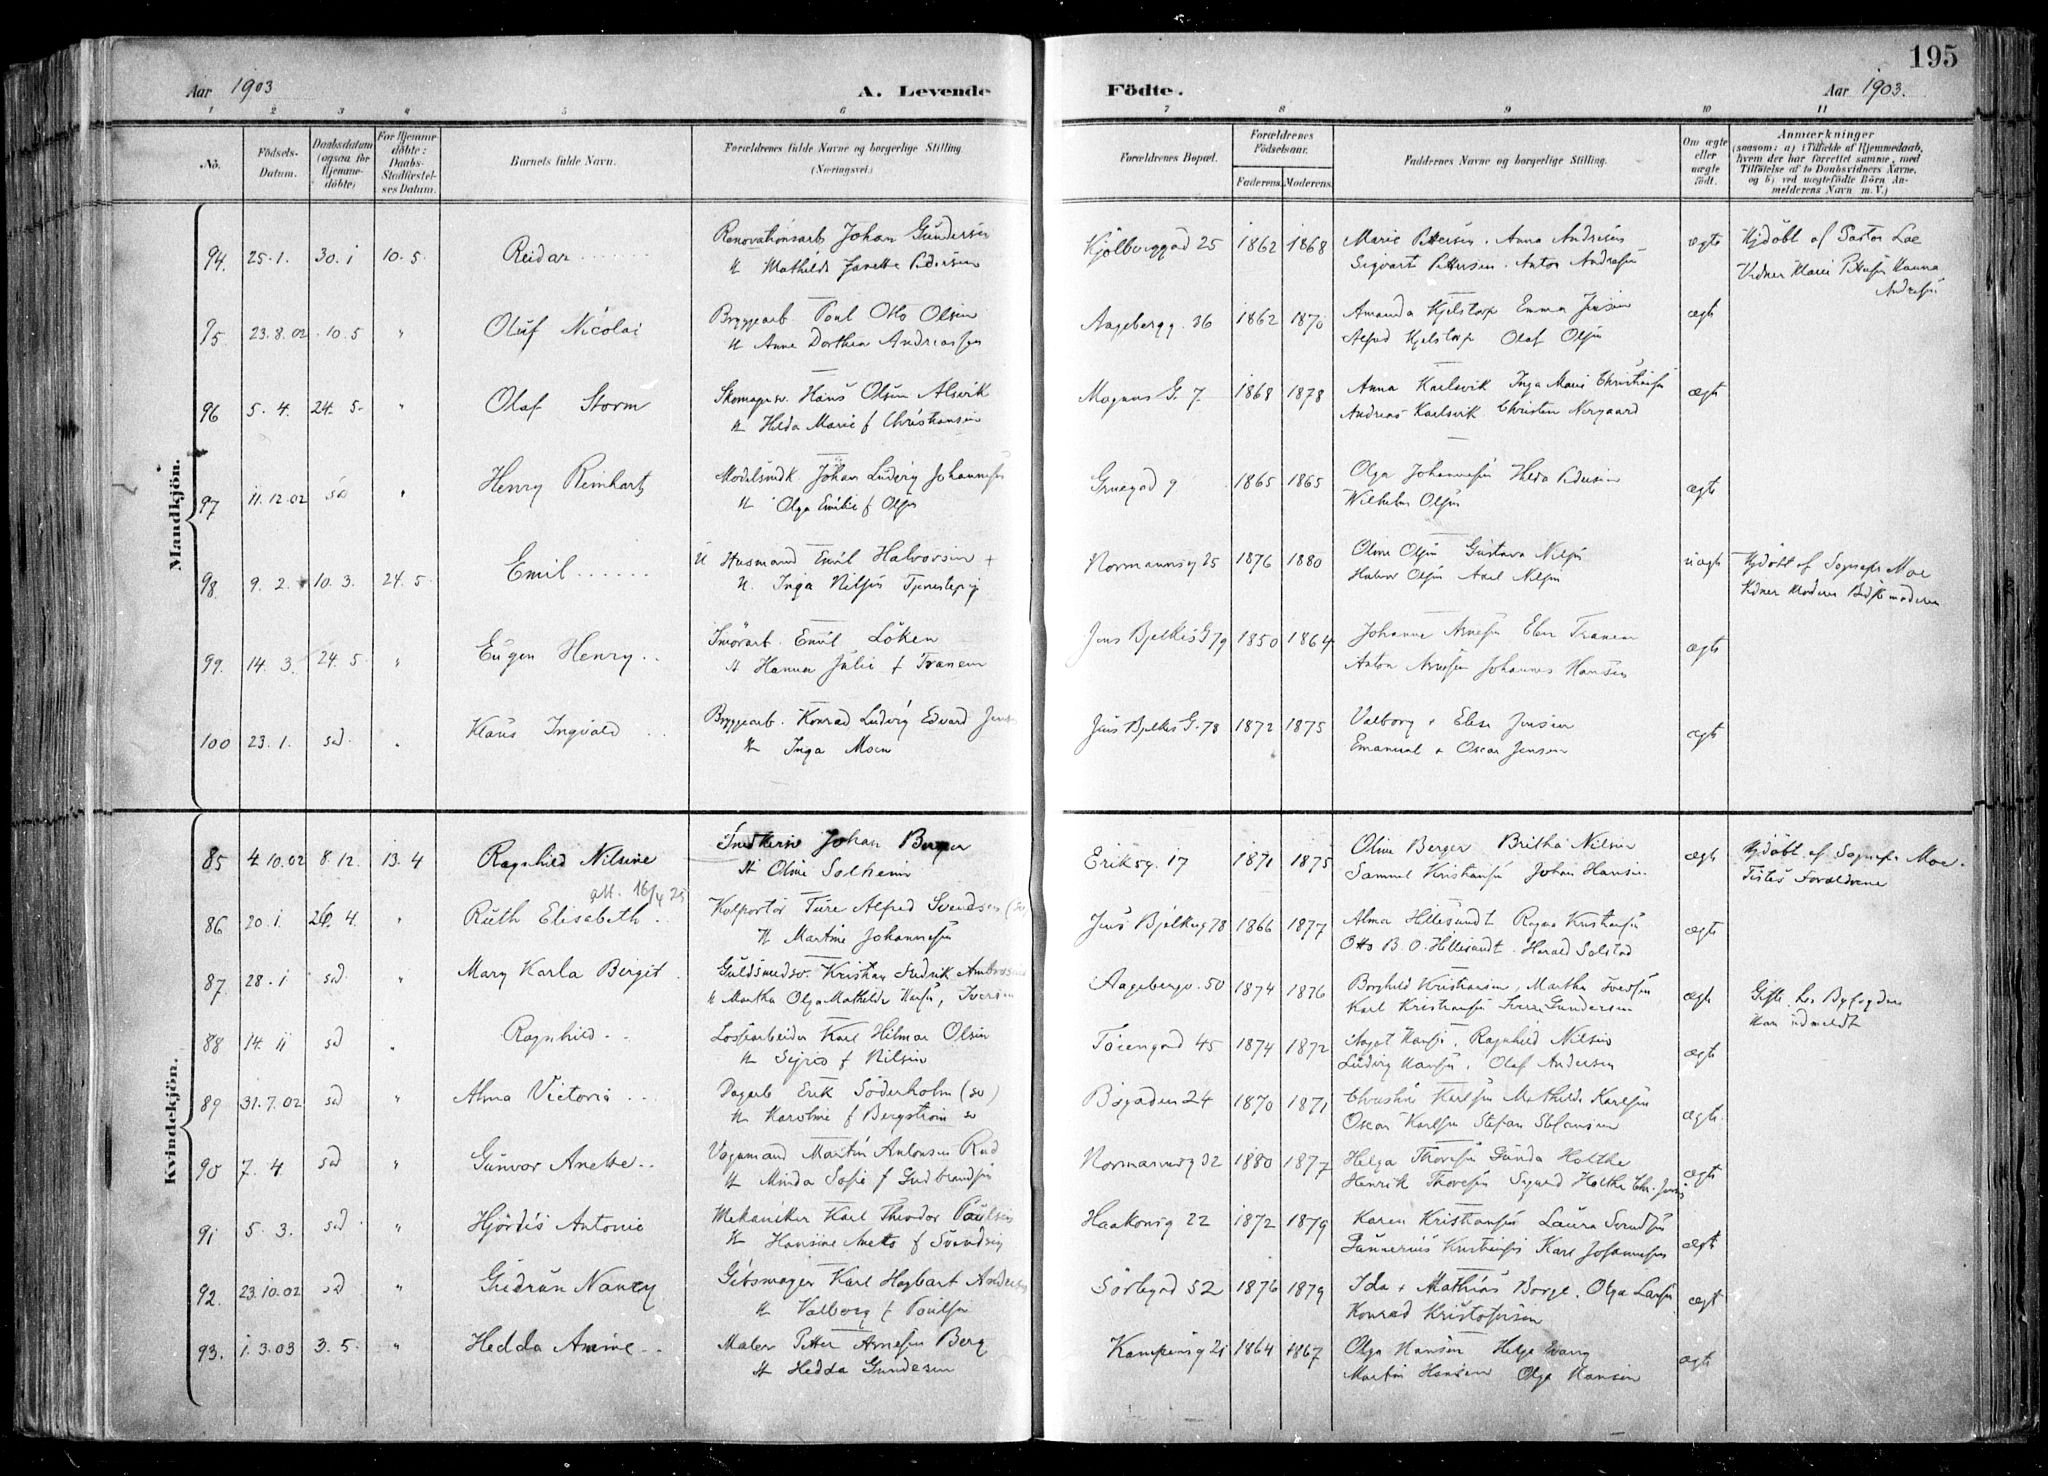 195
Aar 1903 A. Levende Födte. Aar 1903.
1 2 3 4 5 6 7 8 9 10 11
No. Födsels-Datum. Daabsdatum (ogsaa for Hjemme-döbte) For Hjemme-döbte: Daabs-Stadfæstel-ses Datum. Barnets fulde Navn. Forældrenes fulde Navne og borgerlige Stilling. (Næringsvei.) Forældrenes Bopæl. Forældrenes Födselsaar. Faderens. Moderens. Faddernes Navne og borgerlige Stilling. Om ægte eller uægte födt. Anmærkninger
(saasom: a) i Tilfælde af Hjemmedaab, hvem der har forrettet samme, med Tilföielse af to Daabsvidners Navne, og b) ved uægtefödte Börn An-melderens Navn m. V.)
Mandkjön.
94. 25.1. 30.1 10.5. Reidar Renovationsarb Johan Gundersen Kjölberggad 25 1862 1868 Marie Pettersen. Anna Andresen ægte Hjdöbt af Pastor
Mathilde Janette Pedersen Sigvart Pettersen. Anton Andresen Vidner Marie Andresen
95. 23.8.02 10.5 " Oluf Nicolai Bryggearb Poul Otto Olsen Aagebergg. 36 1862 1870 Amanda Kjelstrup Emma Jensen ægte
H Anne Dorthea Andreassen Alfred Kjelstrup Olaf Olsen
96 5.4. 24.5. " Olaf Storm Skomagersv. Hans Olsen Alsvik Magnus G. 7. 1868 1878 Anna Karlsvik Inga Marie Christiansen ægte
H Hilda Marie f Christiansen Andreas Karlsvik Christen Norgaard
97 11.12.02 sd " Henry Reinhart Johan Ludvig Johannessen Gruegad 9 1865 1865 Olga Johannessen Hilda Pedersen ægte
H Olga Emilie f Olsen Wilhelm Olsen
98. 9.2. 10.3. 24.5. Emil U Husmand Emil Halvorsen + Normannsg 25 1876 1880 Oline Olsen Gustava Nilsen uægte Hjdöbt af Sognepr Moe
U. Inga Nilsen Tjenestepig Halvor Olsen Axel Nilsen Vidner Moderen Bedstemoderen
99. 14.3. 24.5. " Eugen Henry Emil Löken Jens Bjelkes G 79 1850 1864 Johanne Arnesen Elen Tranem ægte
H Hanna Julie f Tranem Anton Arnesen Johannes Hansen
100 23.1. sd. " Klaus Ingvald Bryggearb. Konrad Ludvig Edvard Jens Jens Bjelkes G. 78 1872 1875 Valborg + Elise Jensen ægte
H Inga Moen Emanuel + Oscar Jensen
Kvindekjön.
85 4.10.02 8.12. 13.4 Ragnhild Nilsine Snedkersv Johan Berger Eriksg. 17 1871 1875 Oline Berger Britha Nilsen ægte Hjdöbt af Sognepr Moe.
H Oline Solheim Samuel Kristiansen Johan Hansen Forældrene
att. 16/4 25
86 20.1. 26.4. " Ruth Elisabeth. Kolportör Ture Alfred Svendsen (sv Jens Bjelkesg 78 1866 1877 Alma Hillesundt Ragna Kristiansen ægte
H Martine Johannessen Otto B. O. Hillesundt. Harald Solstad
87. 28.1 sd. " Mary Karla Birgit. Guldsmedsv. Kristian Fredrik Aagebergv. 50 1874 1876 Borghild Kristiansen, Martha Iversen ægte Gifte hos Byfogden
H Martha Olga Mathilde Karl Kristiansen Gundersen Han udmeldt
88 14.11 sd " Ragnhild. Losjearbeider Karl Hilmar Olsen Töiengad 45 1874 1872 Aagot Hansen. Ragnhild Nilsen ægte
H Sigrid f Nilsen Ludvig Hansen. Olaf Andersen
89 31.7.02 sd " Alma Victoria Dagarb Erik Söderholm (sv) Bogaden 24 1870 1871 Christine Karlsen Mathilde Karlsen ægte.
H Karoline f Bergström sv Oscar Karlsen Stefan Stefansen
90 7.4 sd " Gunvor Anette Vognmand Martin Antonsen Rud Normannsg 32 1880 1877 Helga Thoresen Gunda Holthe ægte
H Minda Sofie f Gudbrandsen Henrik Thoresen Sigurd Holthe Chr. Jensen
91 5.3. sd. " Hjördis Antonie Mekaniker Karl Theodor Paulsen Haakonsg 22 1872 1879 Karen Kristiansen Laura Svendsen ægte
H Hansine Anette f Svendsen Kristiansen Karl Johannessen
92. 23.10.02 sd " Gudrun Nancy Gibsmager Karl Hagbart Anders Sörligad 52 1876 1879 Ida + Mathias Borge. Olga Larsen ægte
H Valborg f Poulsen Konrad Kristofersen
93. 1.3.03 3.5. " Hedda Amine Maler Petter Arnesen Berg Kampensg 21 1864 1867 Olga Hansen Helga Evang ægte
H Hedda Gundersen Martin Hansen Olga Hansen